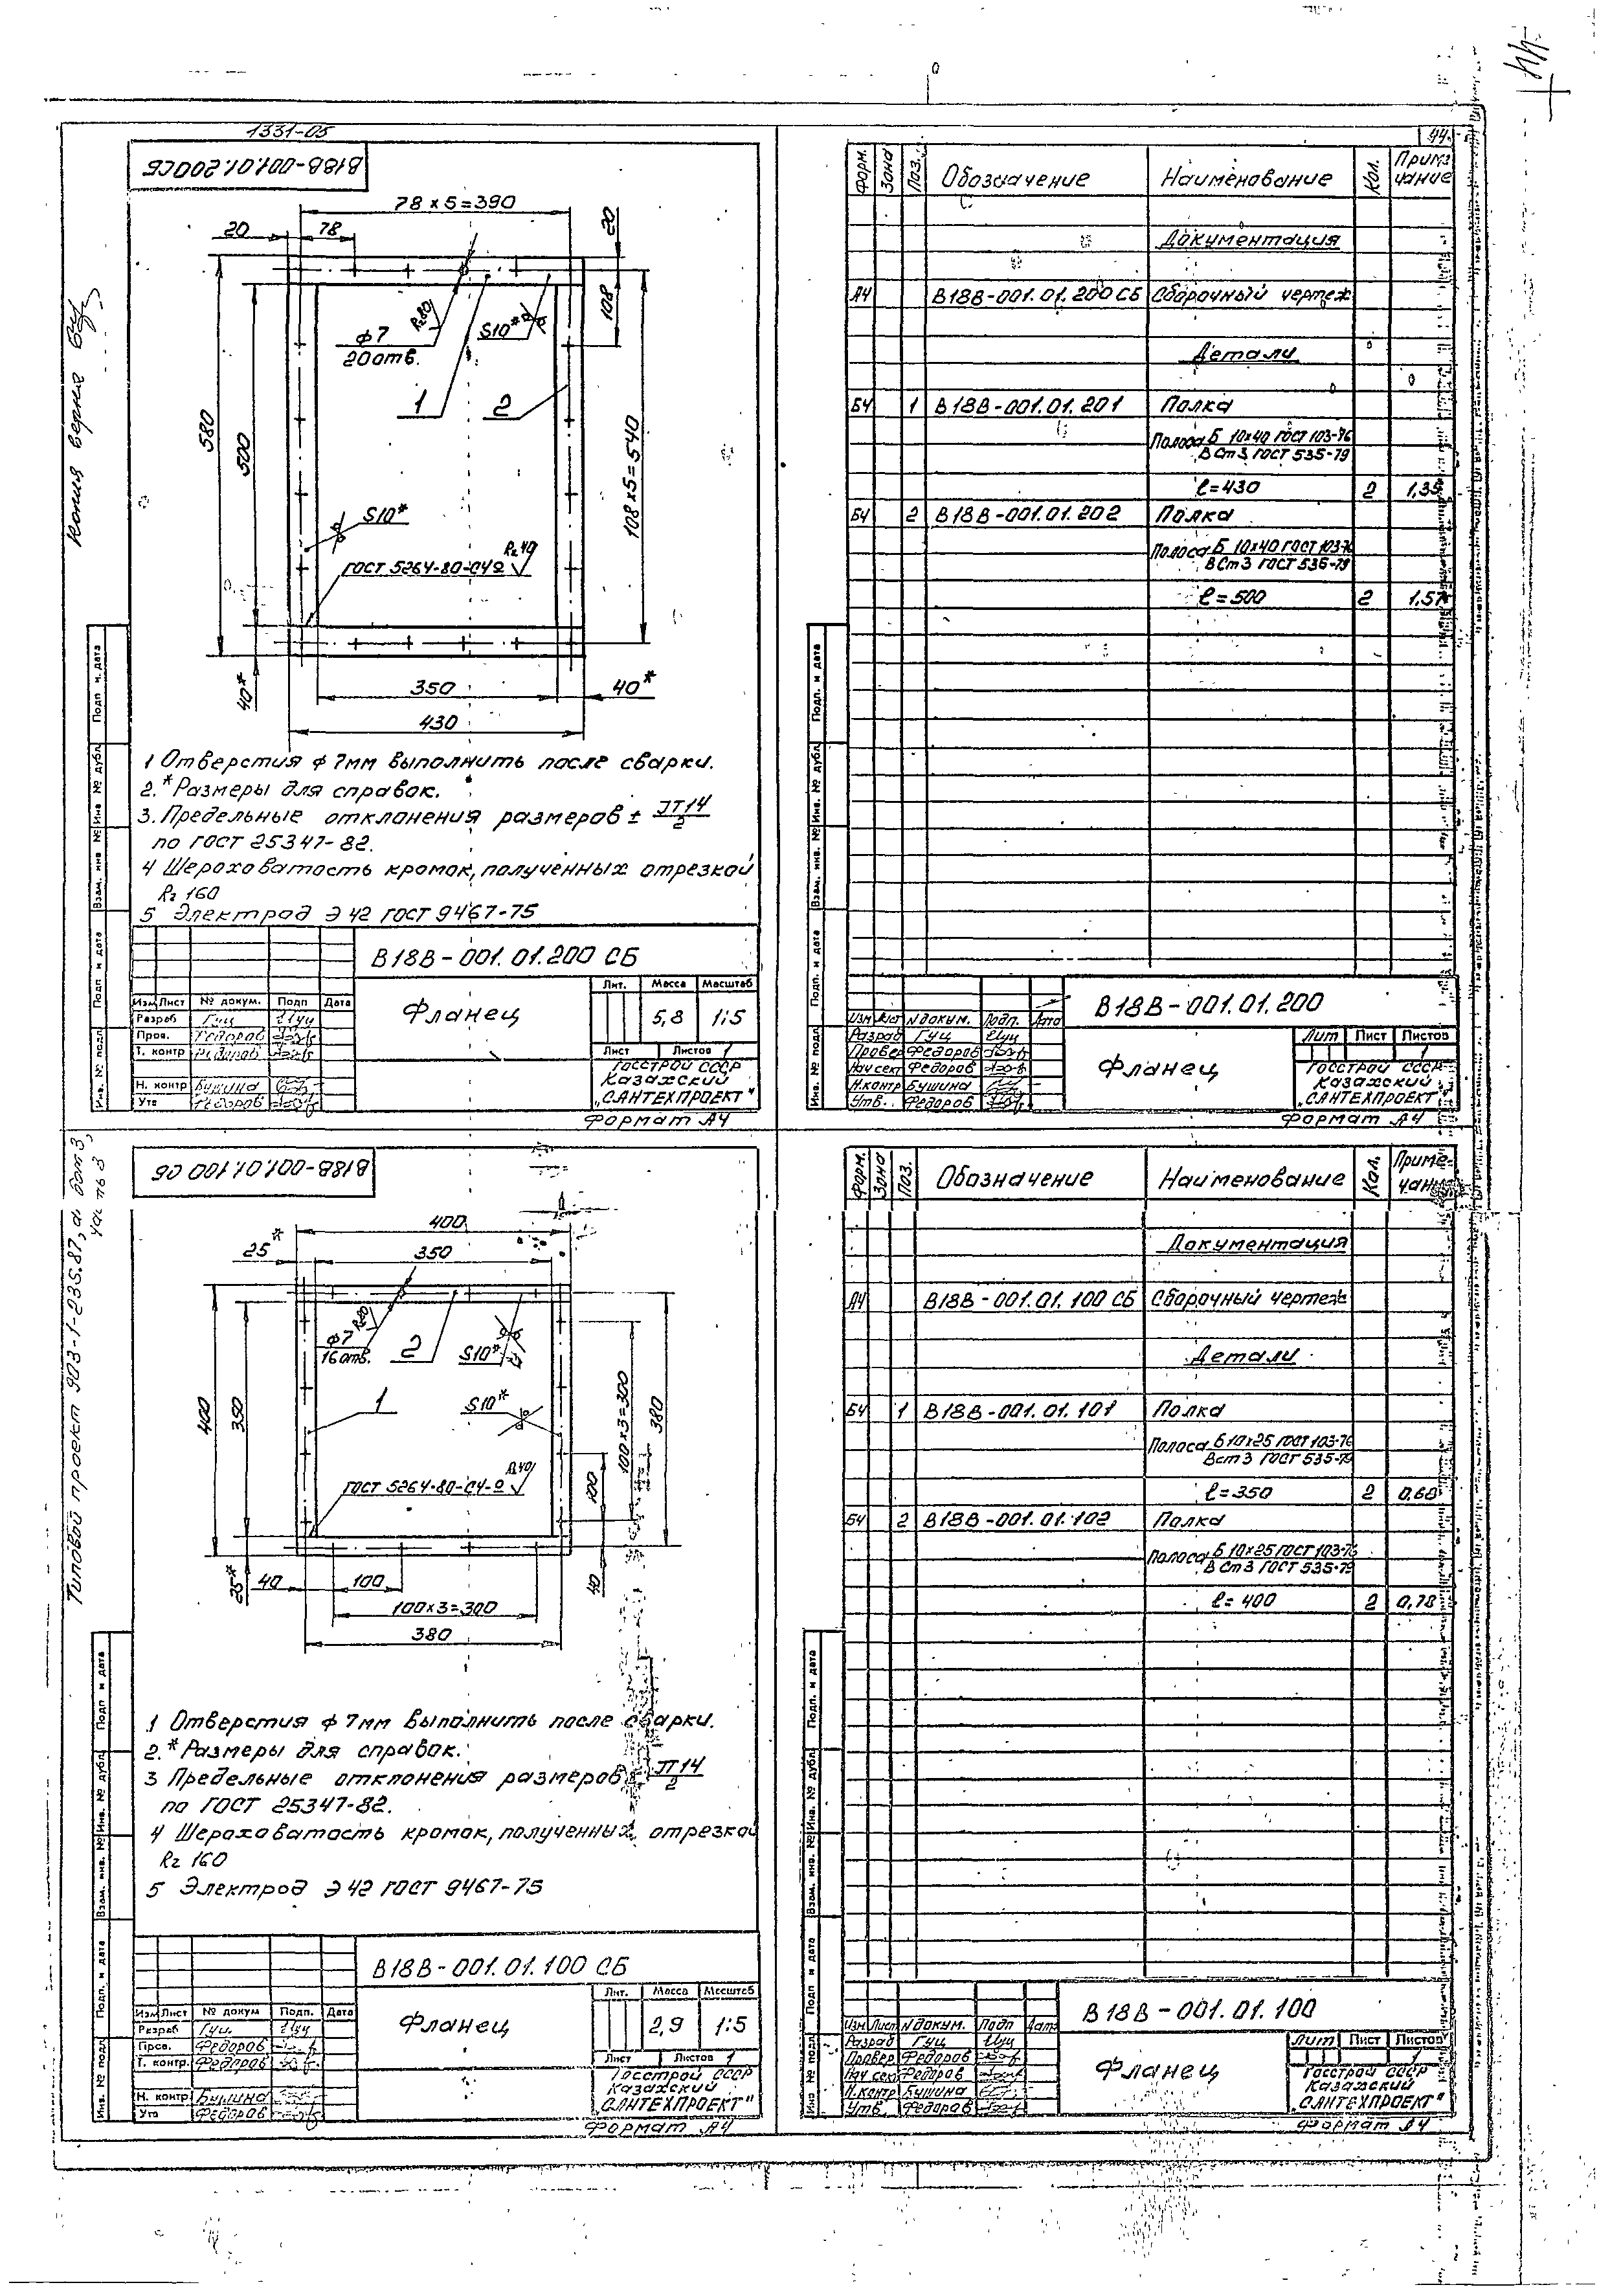 44
1331-05
44
В18В-001.01.200СБ
78 х 5=390
20
78
20
108
Rz80
ф7
20 отв.
S10*
1
2
580
500
108 х 5=540
S10*
Rz 40
ГОСТ 5264-80-С4
350
40*
40*
430
1 Отверстия ф 7мм выполнить после сварки.
2.* Размеры для справок.
3. Предельные отклонения размеров ± IT14/2
по ГОСТ 25347-82.
4 Шероховатость кромок, полученных отрезкой
Rz 160
5 Электрод Э 42 ГОСТ 9467-75
В18В-001.01.200 СБ
Фланец
Лит. Масса Масштаб
5,8 1:5
Лист Листов 1
Госстрой СССР
Казахский
„САНТЕХПРОЕКТ"
Изм Лист № докум. Подп Дата
Разраб Гуц
Пров. Федоров
Т. контр Федоров
Н. контр Бушина
Утв Федоров
Формат А4
Подп и дата
Инв № дубл
Взам. инв №
Подп и дата
Инв. № подл
Копия верна
Форм. Зона Поз. Обозначение Наименование Кол. Примечание
Документация
А4 В18В-001.01.200 СБ Сборочный чертеж
Детали
Б4 1 В18В-001.01.201 Полка
Полоса Б 10х40 ГОСТ 103-76
В Ст 3 ГОСТ 535-79
ℓ=430 2 1,35
Б4 2 В18В-001.01.202 Полка
Полоса Б 10х40 ГОСТ 103-76
В Ст 3 ГОСТ 535-79
ℓ=500 2 1,57
В18В-001.01.200
Изм Лист N докум. Подп. Дата
Разраб Гуц
Провер Федоров
Нач сект Федоров
Н.контр Бушина
Утв. Федоров
Фланец
Лит Лист Листов
1
Госстрой СССР
Казахский
„САНТЕХПРОЕКТ"
Формат А4
Подп. и дата
Инв. № дубл
Взам. инв. №
Подп. и дата
Инв. № подл
Типовой проект 903-1-235.87, альбом 3,
часть 3
В18В-001.01.100 СБ
400
25*
350
Rz80
ф7
16 отв.
2
S10*
1
S10*
400
350
100х3=300
380
Rz40
ГОСТ 5264-80-С4
100
25*
40
100
40
100х3=300
380
1 Отверстия ф 7мм выполнить после сварки.
2.* Размеры для справок.
3 Предельные отклонения размеров ± IT14/2
по ГОСТ 25347-82.
4 Шероховатость кромок, полученных отрезкой
Rz 160
5 Электрод Э 42 ГОСТ 9467-75
В18В-001.01.100 СБ
Фланец
Лит. Масса Масштаб
2,9 1:5
Лист Листов 1
Госстрой СССР
Казахский
„САНТЕХПРОЕКТ"
Изм Лист № докум Подп. Дата
Разраб Гуц
Пров. Федоров
Т. контр. Федоров
Н. контр Бушина
Утв Федоров
Формат А4
Подп и дата
Инв. № дубл
Взам. инв. №
Подп. и дата
Инв. № подл
Форм. Зона Поз. Обозначение Наименование Кол. Примечание
Документация
А4 В18В-001.01.100 СБ Сборочный чертеж
Детали
Б4 1 В18В-001.01.101 Полка
Полоса Б 10х25 ГОСТ 103-76
В Ст 3 ГОСТ 535-79
ℓ=350 2 0,68
Б4 2 В18В-001.01.102 Полка
Полоса Б 10х25 ГОСТ 103-76
В Ст 3 ГОСТ 535-79
ℓ= 400 2 0,78
В18В-001.01.100
Изм Лист N докум. Подп Дата
Разраб Гуц
Провер Федоров
Нач сект Федоров
Н.контр Бушина
Утв. Федоров
Фланец
Лит Лист Листов
1
Госстрой СССР
Казахский
„САНТЕХПРОЕКТ"
Формат А4
Подп. и дата
Инв. № дубл
Взам. инв. №
Подп и дата
Инв № подл